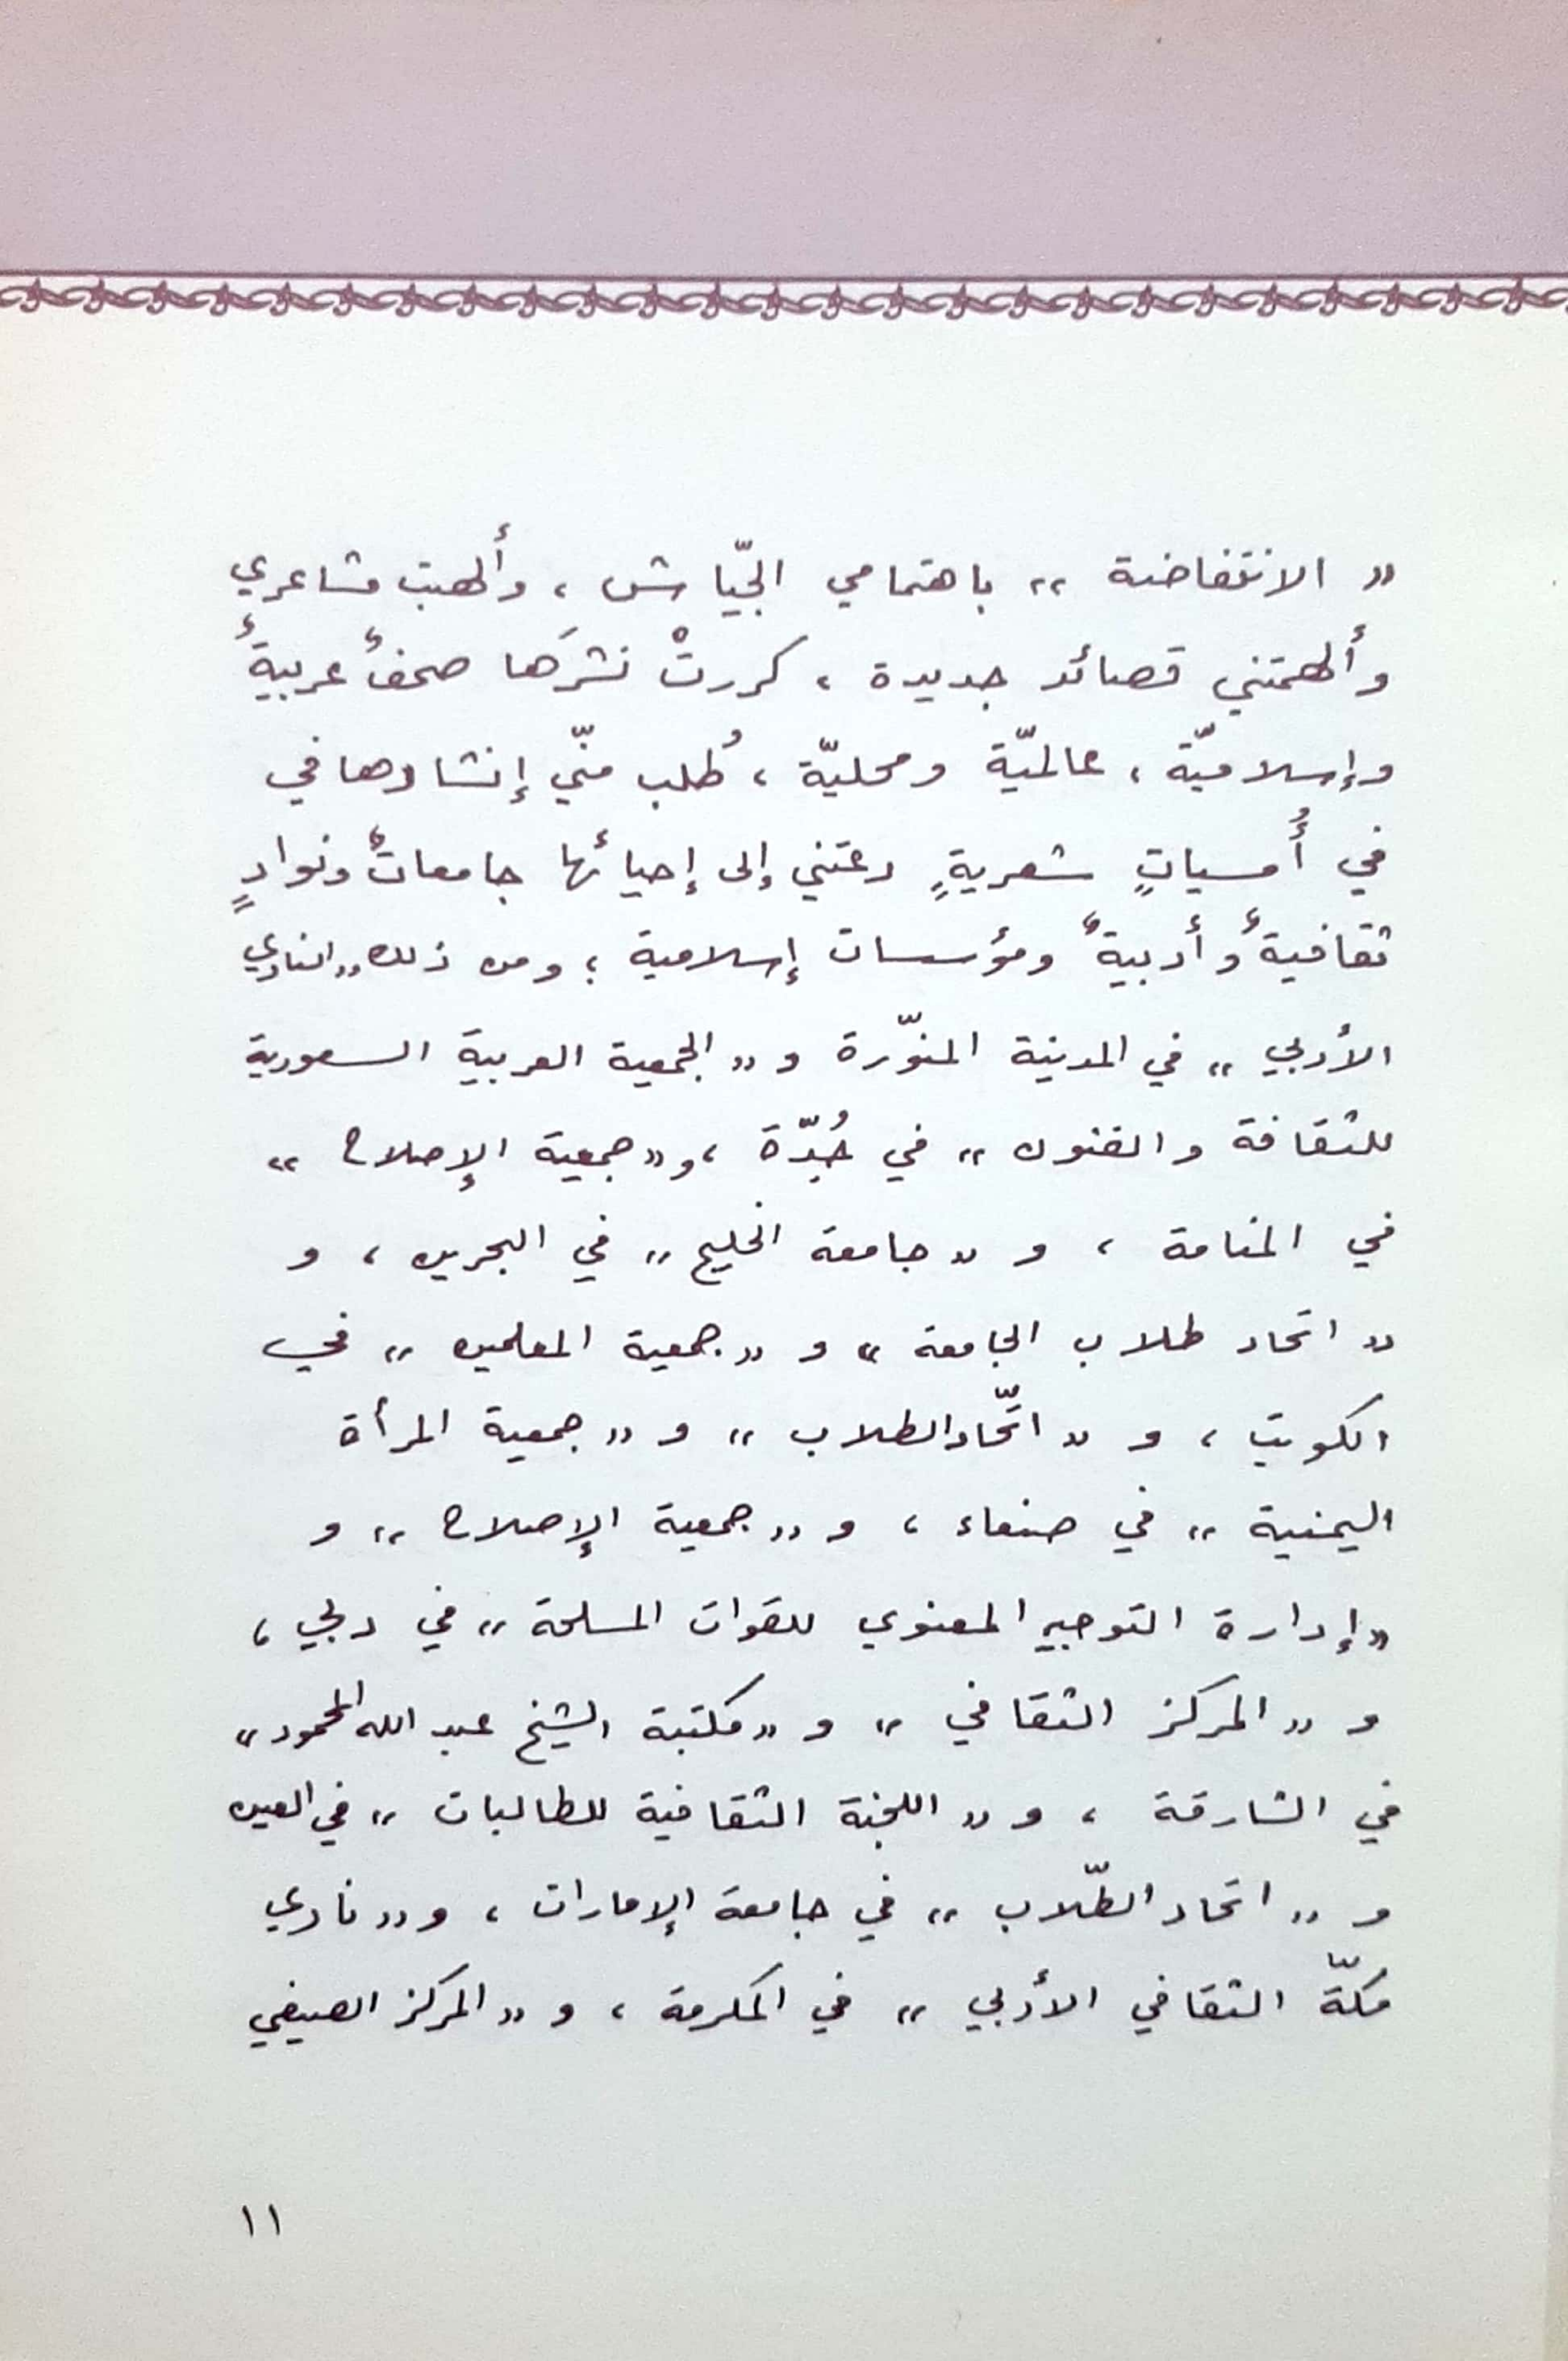 « الانتفاضة » باهتمامي الجيّاش ، وألهبت مشاعري
وألهمتني قصائد جديدة ، كررتْ نشرَها صحفٌ عربيةٌ
وإسلاميّة ، عالميّة ومحليّة ، طُلب منّي إنشادها في
في أُمسياتٍ شعريةٍ دعتني إلى إحيائها جامعاتٌ ونوادٍ
ثقافيةٌ وأدبيةٌ ومؤسسات إسلامية ؛ ومن ذلك « النادي
الأدبي » في المدينة المنوّرة و « الجمعية العربية السعودية
للثقافة والفنون » في جُدّة ، و « جمعية الإصلاح »
في المنامة ، و « جامعة الخليج » في البحرين ، و
« اتحاد طلاب الجامعة » و « جمعية المعلمين » في
الكويت ، و « اتّحاد الطلاب » و « جمعية المرأة
اليمنية » في صنعاء ، و « جمعية الإصلاح » و
« إدارة التوجيه المعنوي للقوات المسلحة » في دبي ،
و « المركز الثقافي » و « مكتبة الشيخ عبد الله المحمود »
في الشارقة ، و « اللجنة الثقافية للطالبات » في العين
و « اتحاد الطّلاب » في جامعة الإمارات ، و « نادي
مكّة الثقافي الأدبي » في المكرمة ، و « المركز الصيفي
١١